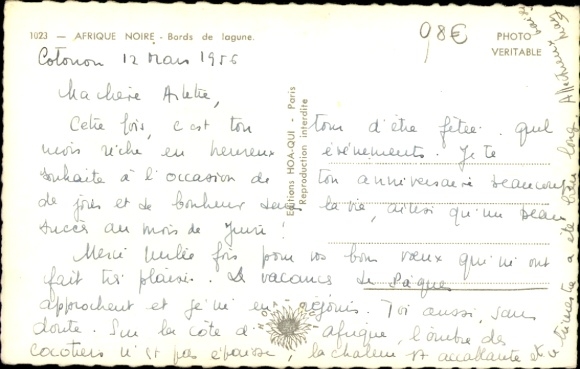 1023 — AFRIQUE NOIRE - Bords de lagune.
Cotonou 12 Mars 1956
98€
PHOTO
VERITABLE
Ma chère Arlette,
Cette fois, c'est ton tour d'être fêtée. quel
mois riche en heureux événements. Je te
souhaite à l'occasion de ton anniversaire beaucoup
de joies et de bonheur dans la vie, ainsi qu'un beau
succès au mois de Juin!
Merci mille fois pour vos bons voeux qui m'ont
fait très plaisir. Les vacances de Pâques
approchent et je m'en réjouis. Toi aussi, sans
doute. Sur la côte d'Afrique, l'ombre des
cocotiers n'est pas épaisse, la chaleur est accablante et
le trimestre a été bien long. Affectueux
Editions HOA-QUI - Paris
Reproduction interdite
HOA QUI